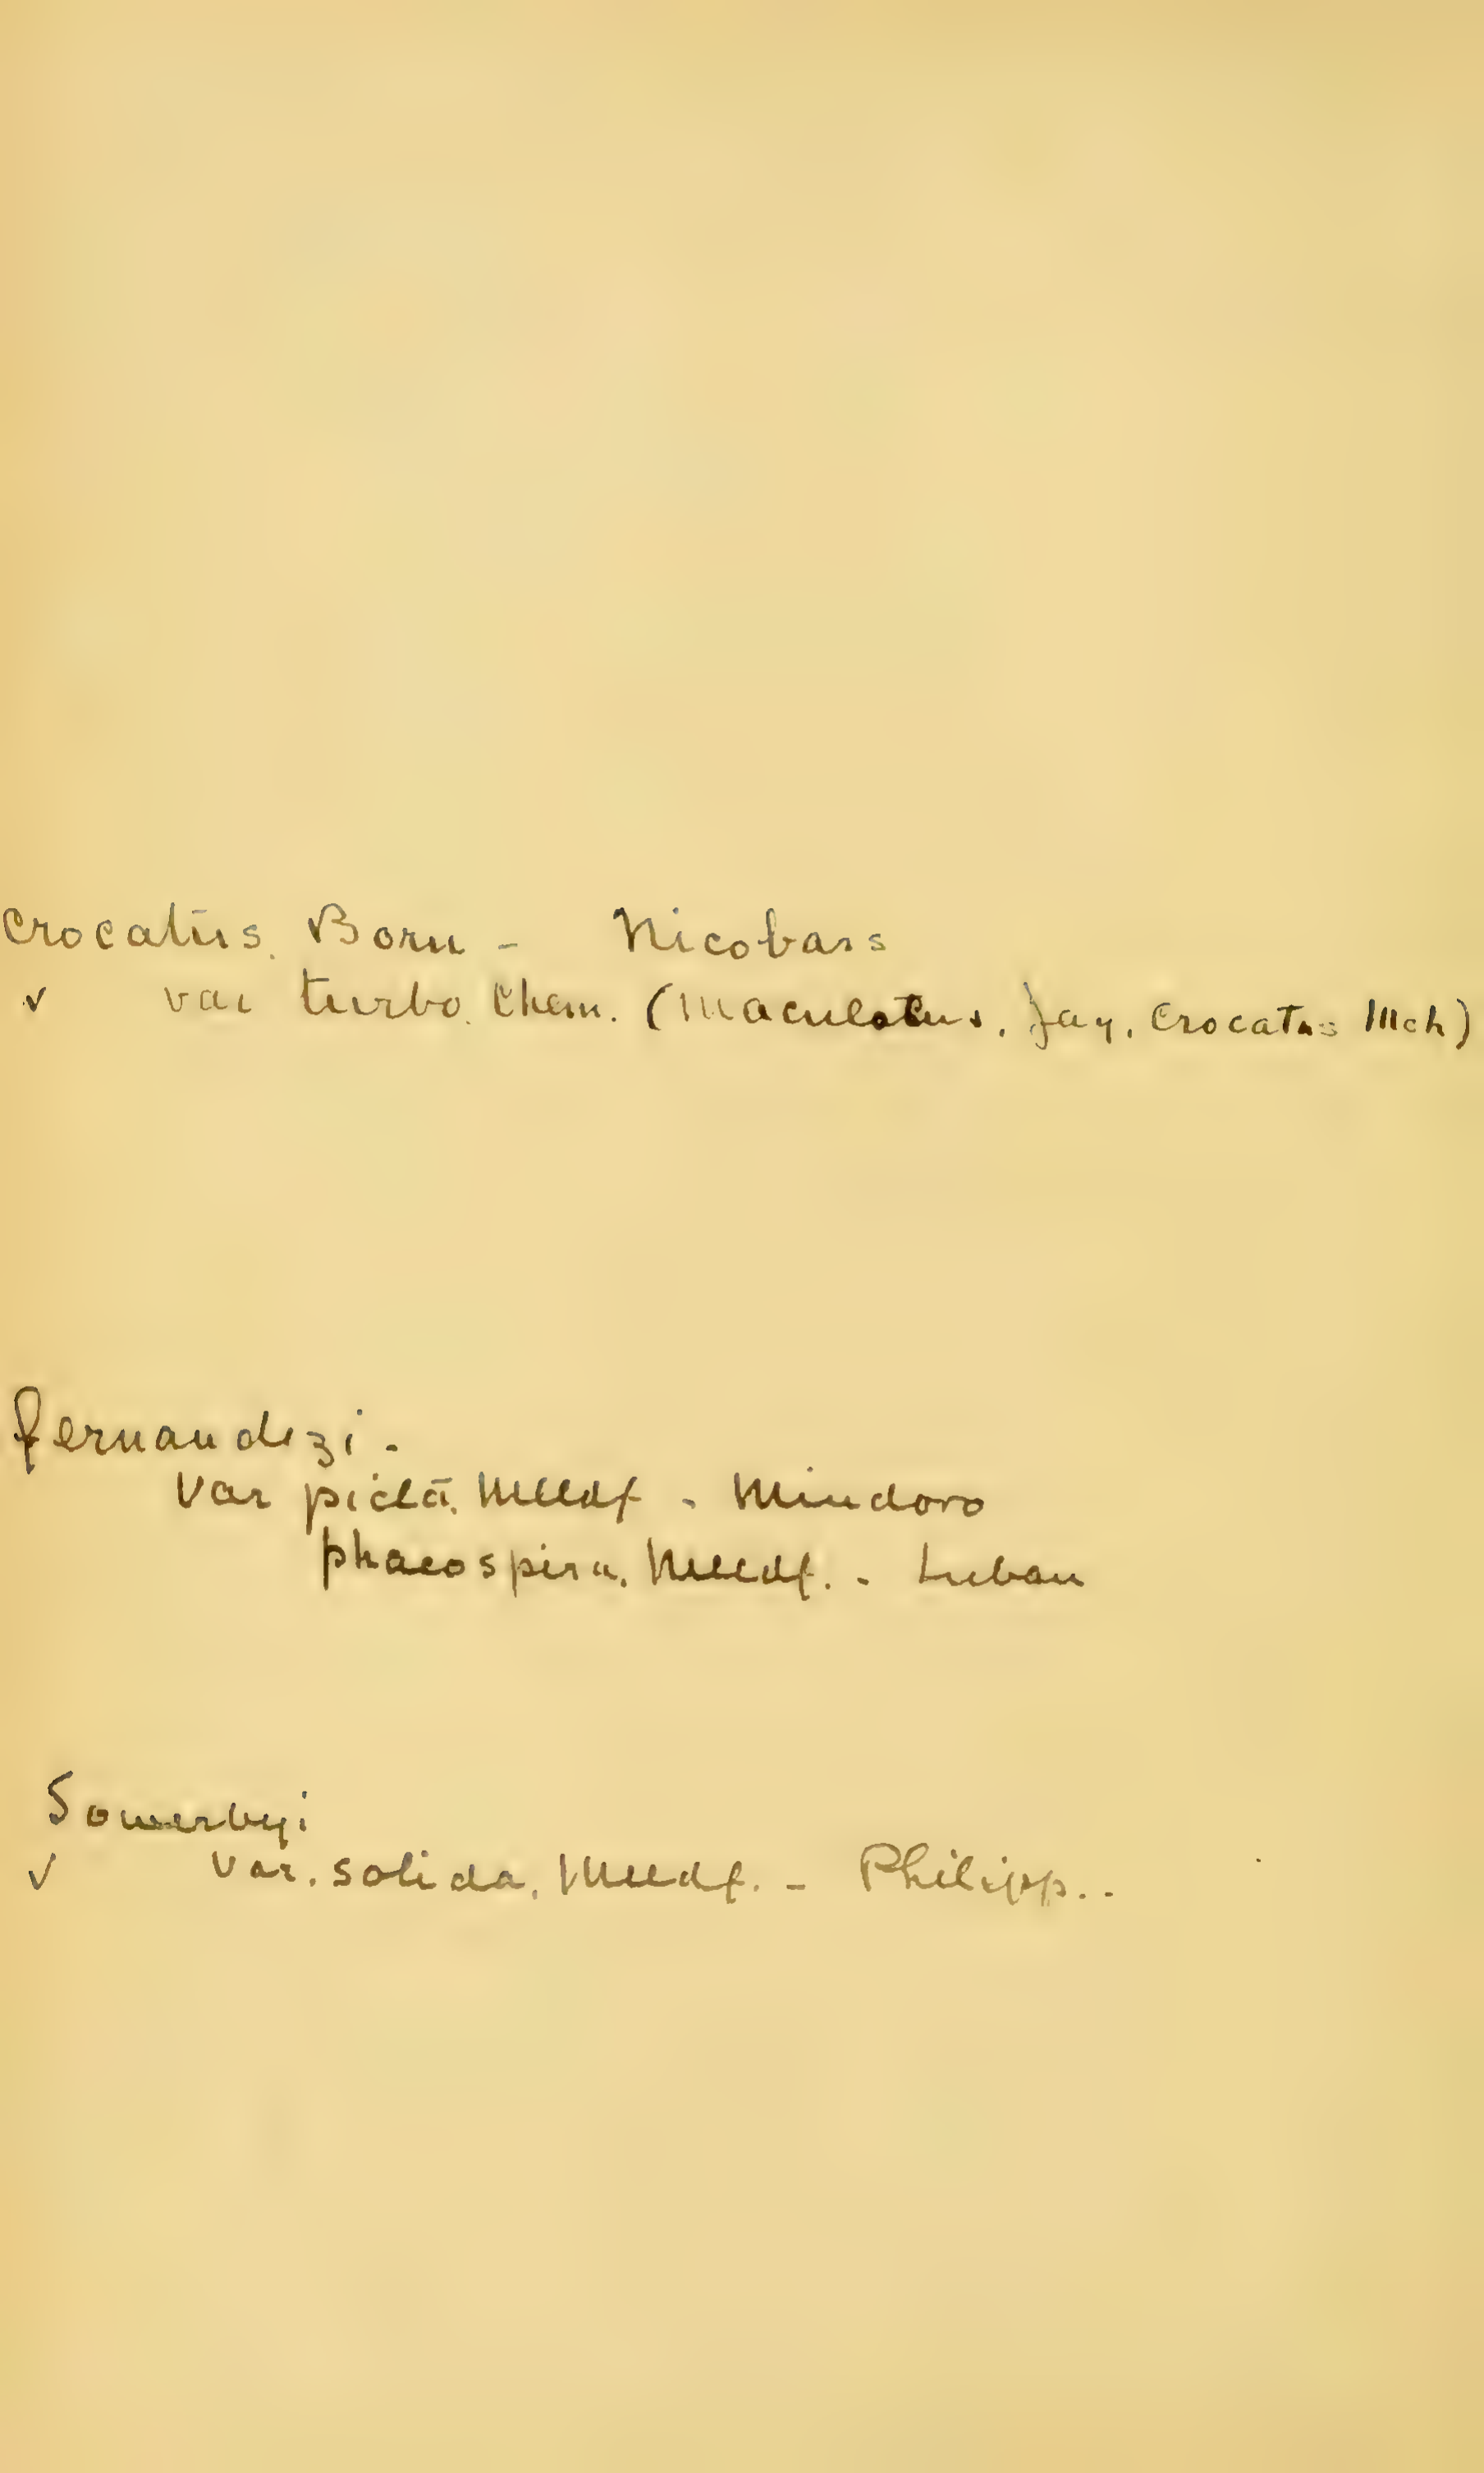 Crocatus. Born - Nicobars
✓ var turbo. Chem. (Maculatus. Jay. Crocatus Mch)
fernandezi -
Var picta. Mlldf - Mindoro
phaeospira. Mlldf. - Luban
Sowerbyi
✓ Var. solida. Mlldf. - Philipp..